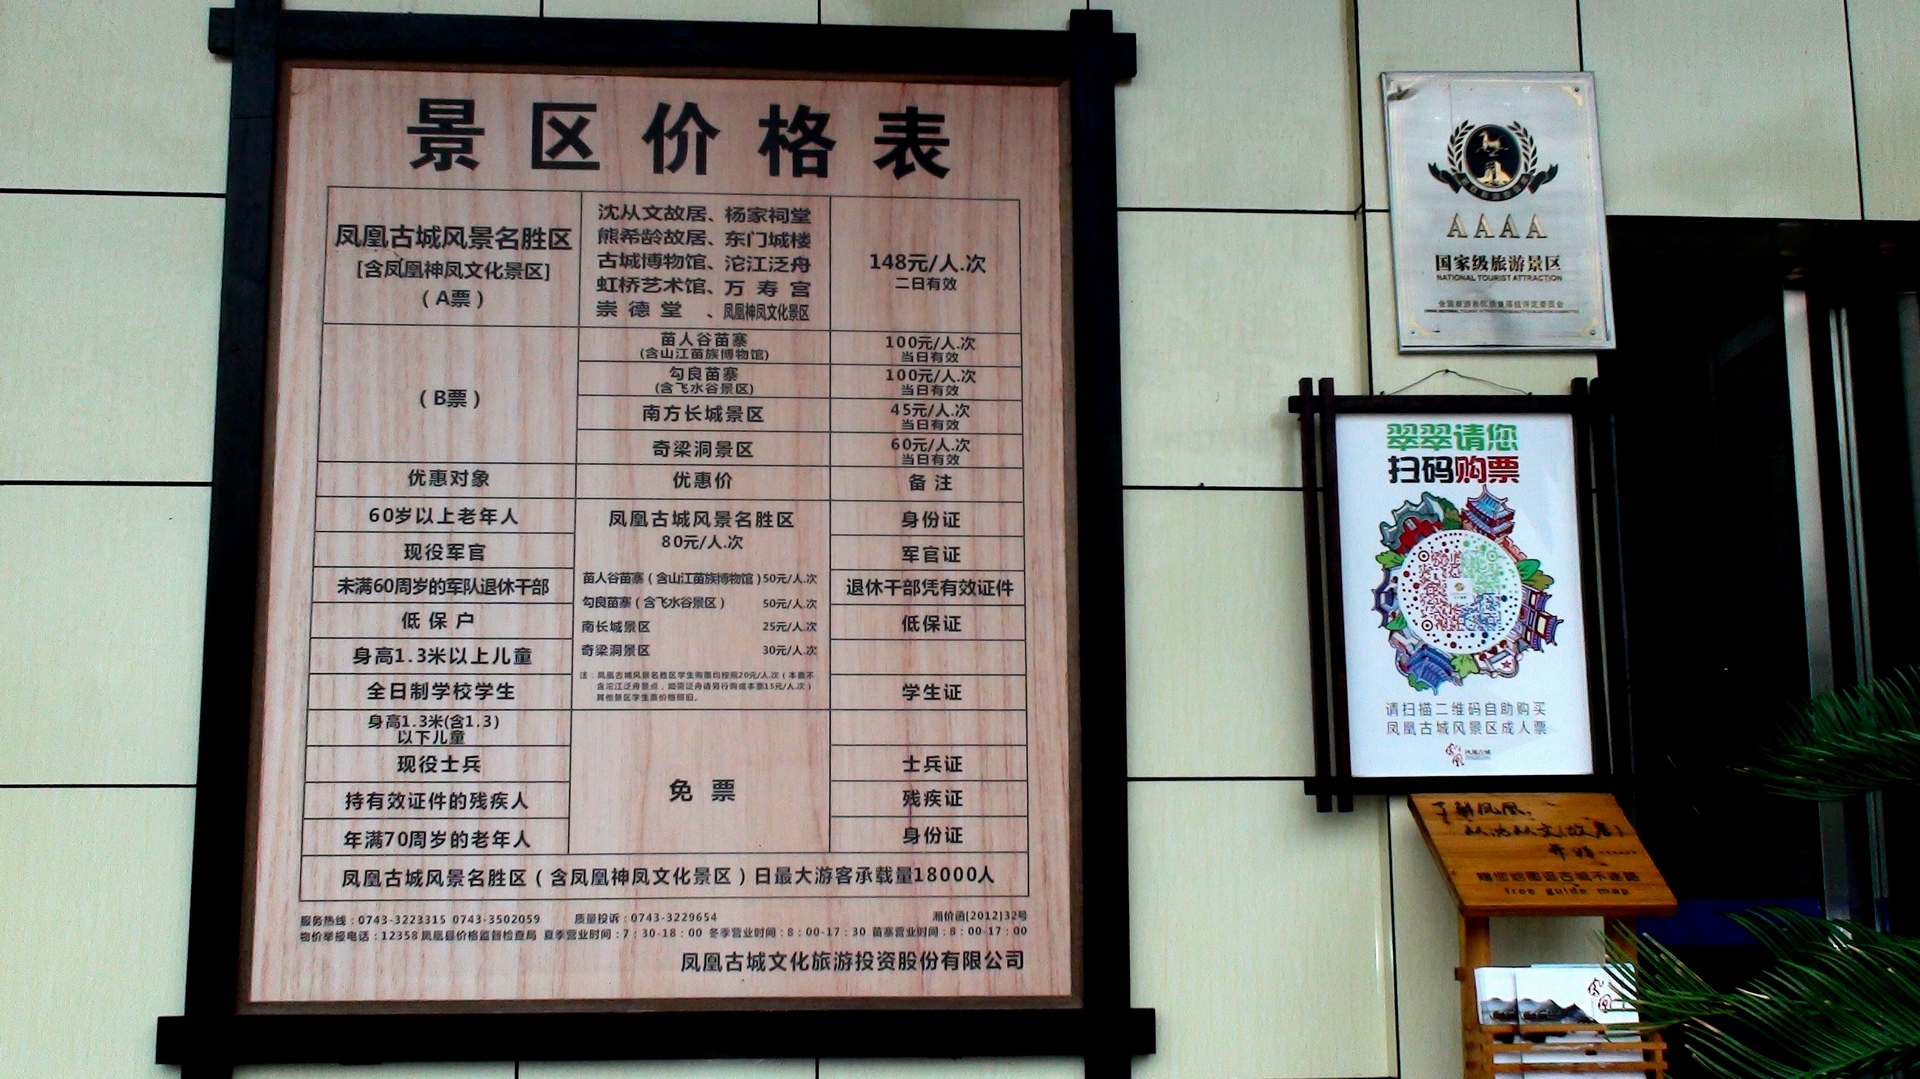 景区价格表
凤凰古城风景名胜区
[含凤凰神凤文化景区]
（A票）
沈从文故居、杨家祠堂
熊希龄故居、东门城楼
古城博物馆、沱江泛舟
虹桥艺术馆、万寿宫
崇德堂、凤凰神凤文化景区
148元/人.次
二日有效
（B票）
苗人谷苗寨
(含山江苗族博物馆)
100元/人.次
当日有效
勾良苗寨
(含飞水谷景区)
100元/人.次
当日有效
南方长城景区
45元/人.次
当日有效
奇梁洞景区
60元/人.次
当日有效
优惠对象
优惠价
备注
60岁以上老年人
现役军官
未满60周岁的军队退休干部
低保户
身高1.3米以上儿童
全日制学校学生
凤凰古城风景名胜区
80元/人.次
苗人谷苗寨（含山江苗族博物馆）50元/人.次
勾良苗寨（含飞水谷景区） 50元/人.次
南长城景区 25元/人.次
奇梁洞景区 30元/人.次
注：凤凰古城风景名胜区学生购票均按照20元/人.次（本票不
含沱江泛舟景点，如需泛舟请另行购成本票15元/人.次）
其他景区学生票价格照旧。
身份证
军官证
退休干部凭有效证件
低保证
学生证
身高1.3米(含1.3)
以下儿童
现役士兵
持有效证件的残疾人
年满70周岁的老年人
免票
士兵证
残疾证
身份证
凤凰古城风景名胜区（含凤凰神凤文化景区）日最大游客承载量18000人
服务热线：0743-3223315 0743-3502059 质量投诉：0743-3229654 湘价函[2012]32号
物价举报电话：12358 凤凰县价格监督检查局 夏季营业时间：7：30-18：00 冬季营业时间：8：00-17：30 苗寨营业时间：8：00-17：00
凤凰古城文化旅游投资股份有限公司
AAAA
国家级旅游景区
NATIONAL TOURIST ATTRACTION
全国旅游景区质量等级评定委员会
翠翠请您
扫码购票
请扫描二维码自助购买
凤凰古城风景区成人票
凤凰古城
了解凤凰，
从沈从文(故居)
开始……
赠您地图逛古城不迷路
free guide map